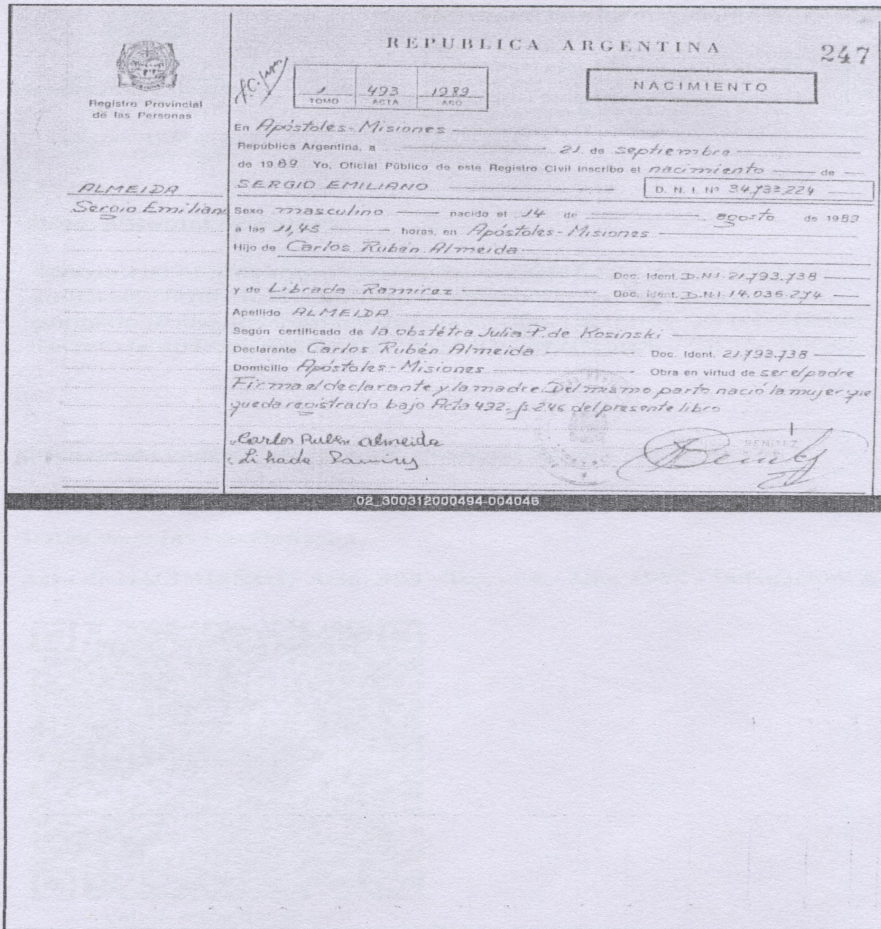 REPUBLICA ARGENTINA
247
Registro Provincial
de las Personas
1 493 1989
TOMO ACTA AÑO
NACIMIENTO
En Apóstoles - Misiones
República Argentina, a 21 de septiembre
de 1989 Yo, Oficial Público de este Registro Civil inscribo el nacimiento de
SERGIO EMILIANO D. N. I. Nº 34.733.224
ALMEIDA
Sergio Emiliano
Sexo masculino nacido el 14 de agosto de 1989
a las 11,45 horas, en Apóstoles - Misiones
Hijo de Carlos Rubén Almeida
Doc. Ident. D.N.I. 21.793.738
y de Librada Ramirez Doc. Ident. D.N.I. 14.036.274
Apellido ALMEIDA
Según certificado de la obstétra Julia P. de Kosinski
Declarante Carlos Rubén Almeida Doc. Ident. 21.793.738
Domicilio Apóstoles - Misiones Obra en virtud de ser el padre
Firma el declarante y la madre. Del mismo parto nació la mujer que
queda registrado bajo Acta 492, fs 246 del presente libro
Carlos Ruben Almeida
BENITEZ
02_300312000494-004046